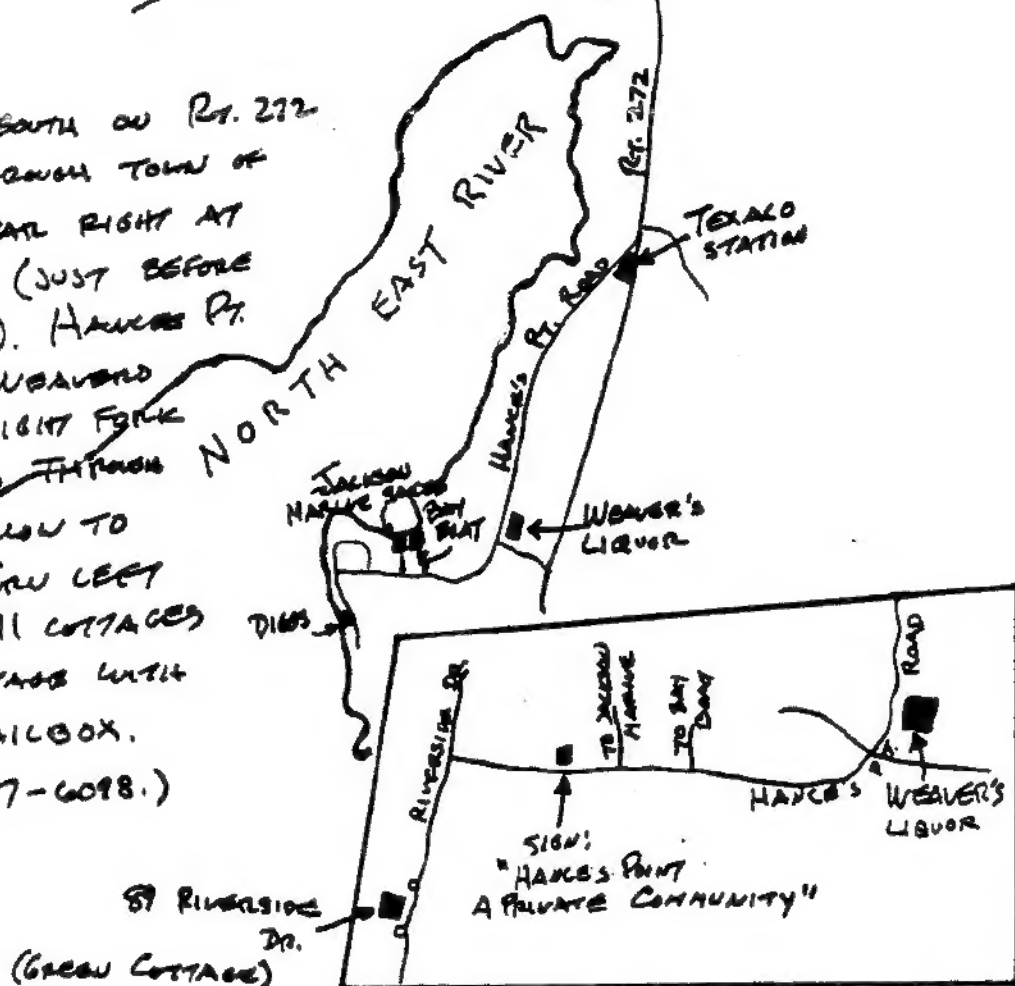 SOUTH ON RT. 272
ROUGH TOWN OF
EAR RIGHT AT
(JUST BEFORE
). HANCES PT.
WEAVERS
RIGHT FORK
THROUGH
LOW TO
TURN LEFT
11 COTTAGES
TAGE WITH
AILBOX.
7-6098.)
NORTH EAST RIVER
RT. 272
TEXACO
STATION
HANCE'S PT. ROAD
WEAVER'S
LIQUOR
JACKSON
MARINE SALES
BAY
BOAT
DIGGS
RIVERSIDE DR.
TO JACKSON
MARINE
TO BAY
BOAT
ROAD
HANCE'S
WEAVER'S
LIQUOR
SIGN:
"HANCE'S POINT
A PRIVATE COMMUNITY"
89 RIVERSIDE
DR.
(GREEN COTTAGE)